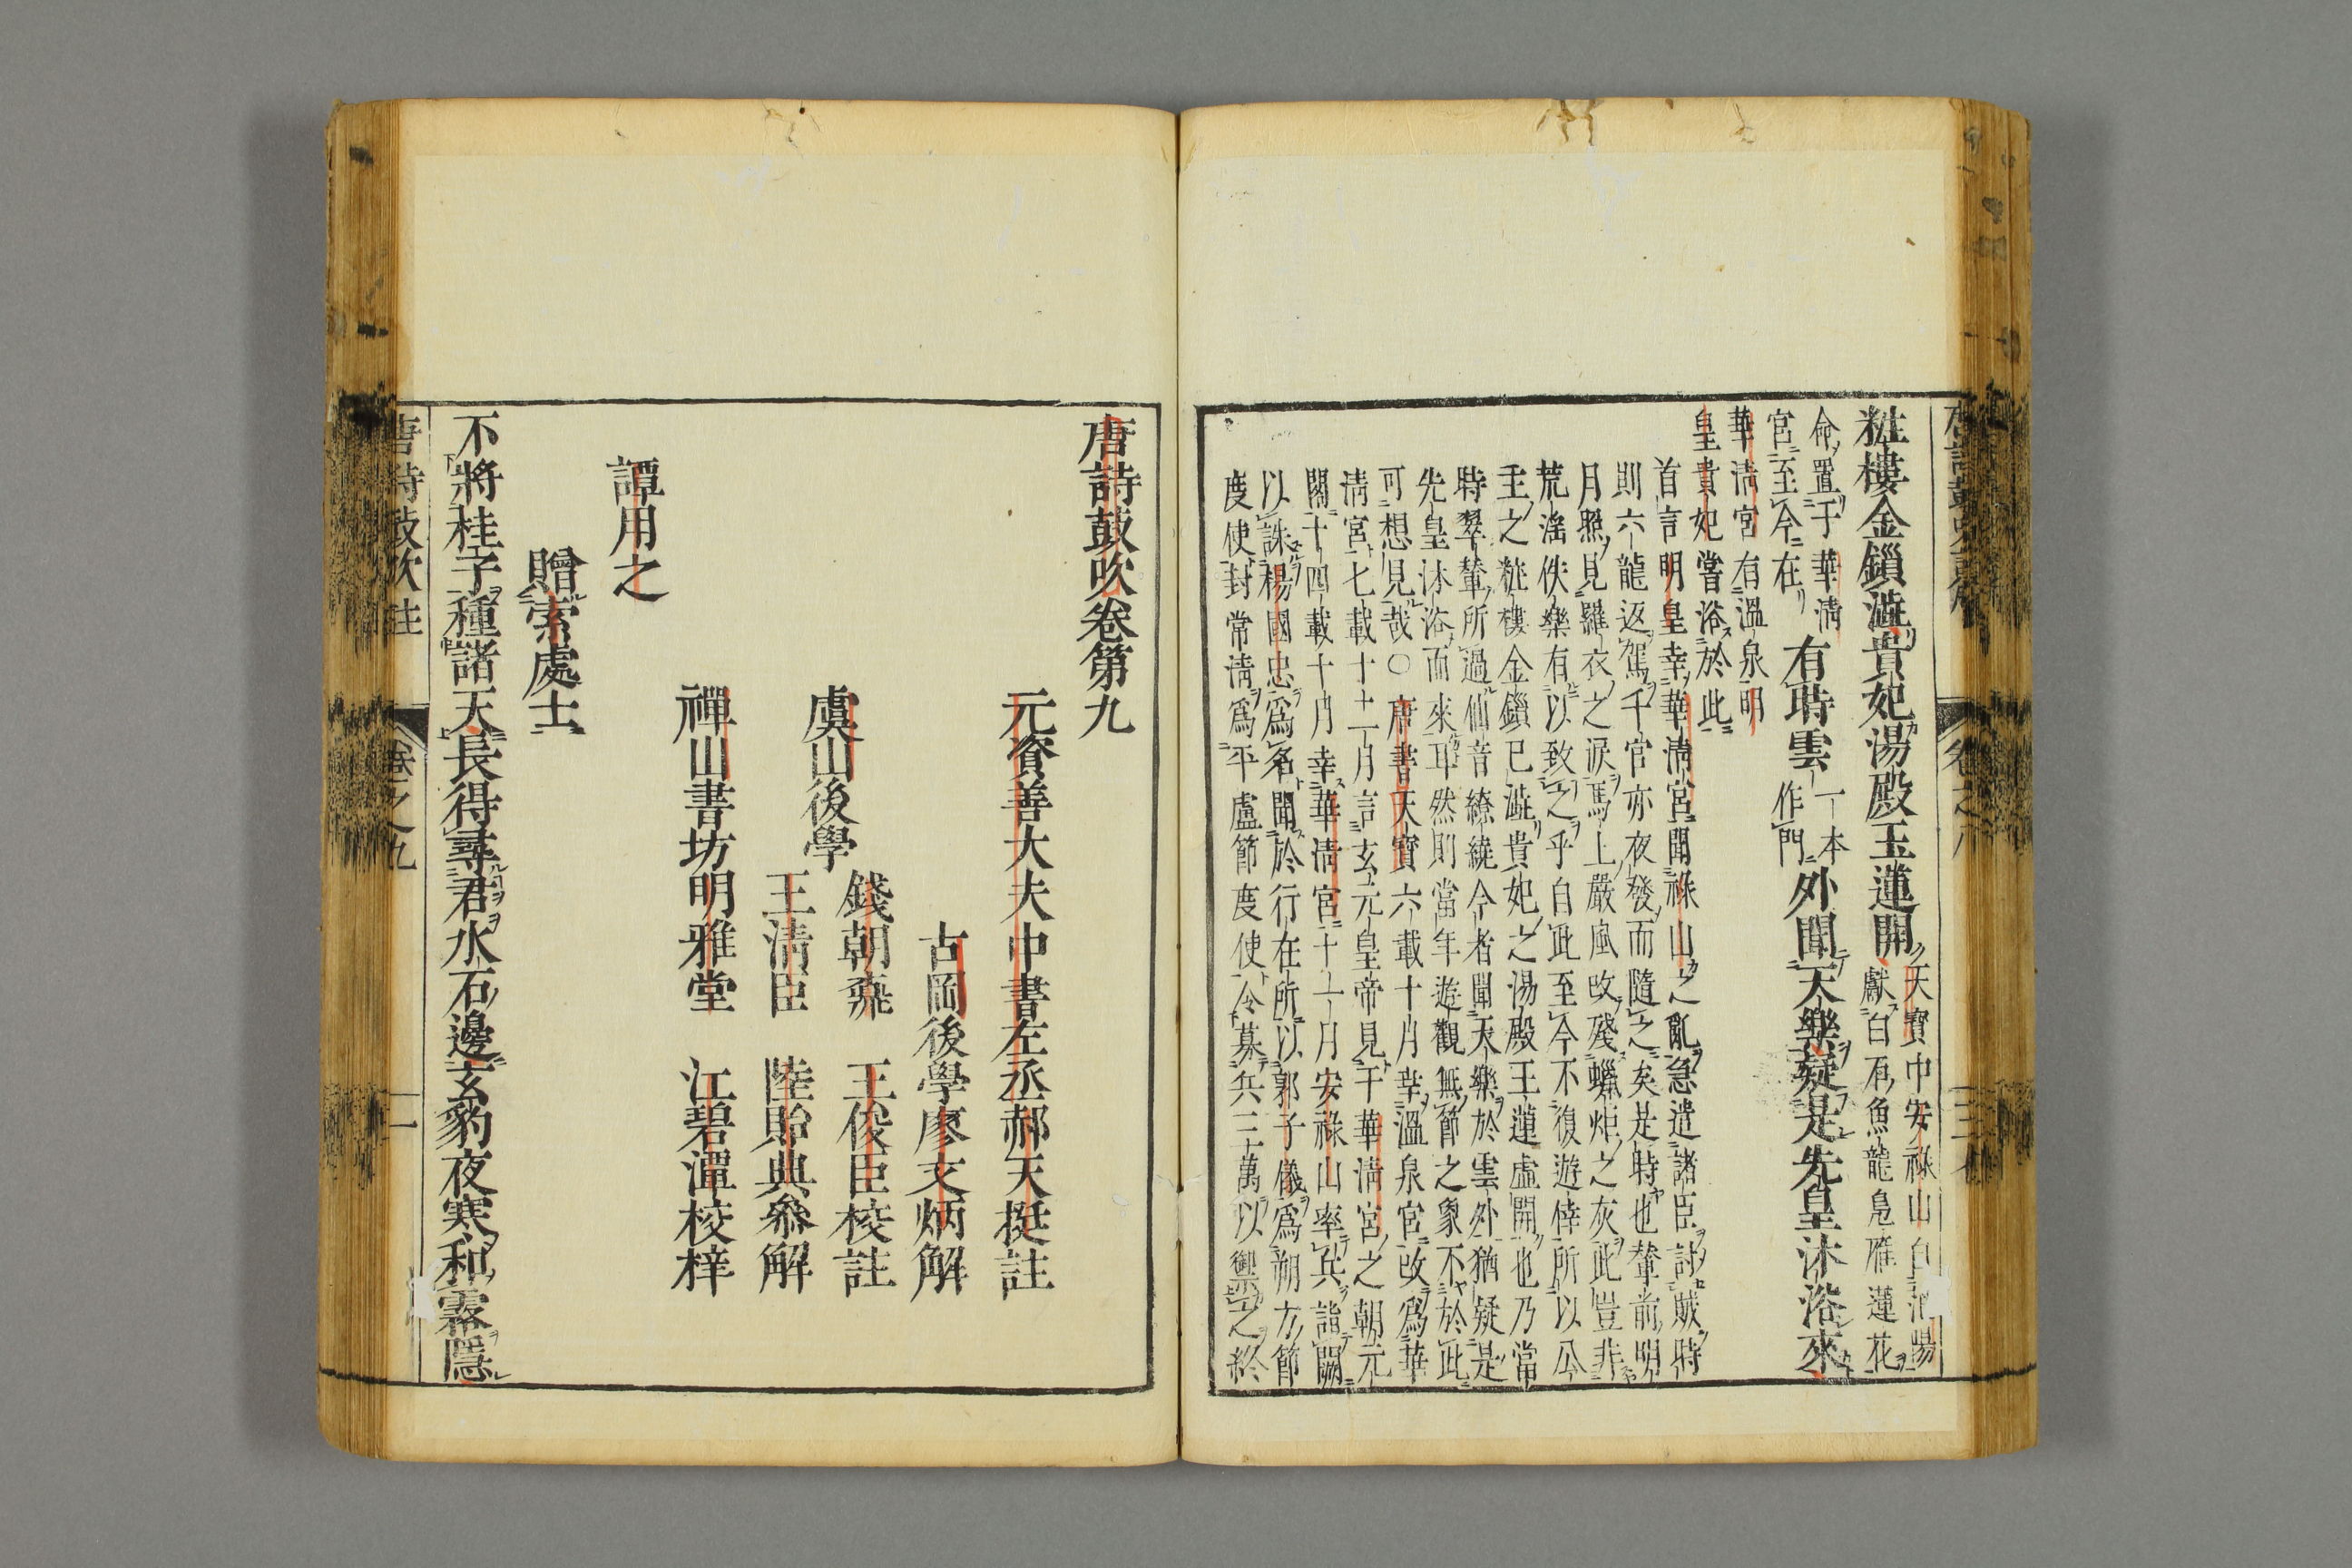 粧樓金鎖澁貴妃湯殿玉蓮開
天寶中安祿山自范陽
獻白石魚龍鳧雁蓮花
命置于華清
宮至今在
有時雲
一本
作門
外聞天樂疑是先皇沐浴來
華淸宮有溫泉明
皇貴妃嘗浴於此
首言明皇幸華淸宮聞祿山之亂急遣諸臣討賊時
則六龍返駕千官亦夜發而隨之矣是時也輦前明
月照見羅衣之淚馬上嚴風吹殘蠟炬之灰此豈非
荒滛佚樂有以致之乎自此至今不復遊倖所以公
主之粧樓金鎖已澁貴妃之湯殿玉蓮虛開也乃當
時翠輦所過仙音繚繞今者聞天樂於雲外猶疑是
先皇沐浴而來耳然則當年遊觀無節之象不於此
可想見哉○唐書天寶六載十月幸溫泉宮改爲華
淸宮七載十二月言玄元皇帝見于華淸宮之朝元
閣十四載十月幸華淸宮十一月安祿山率兵詣闕
以誅楊國忠爲名聞於行在所以郭子儀爲朔方節
度使封常淸爲平盧節度使令募兵三萬以禦之終
唐詩鼓吹卷第九
元資善大夫中書左丞郝天挺註
古岡後學廖文炳解
虞山後學
錢朝鼒　王俊臣校註
王淸臣　陸貽典叅解
禪山書坊明雅堂　江碧潭校梓
譚用之
贈索處士
不將桂子種諸天長得尋君水石邊玄豹夜寒和霧隱
唐詩鼓吹註
卷之九
一